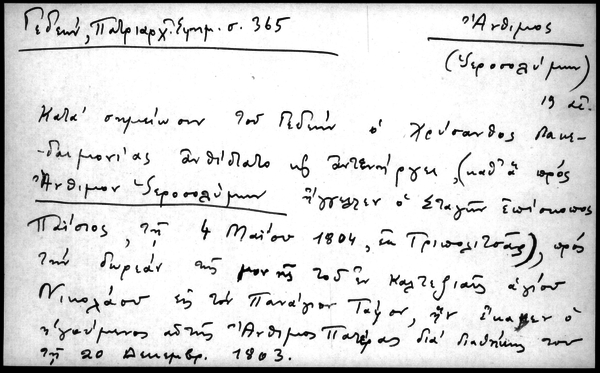 Γεδεών, Πατριαρχ. Εφημ. σ. 365
Ἄνθιμος
(Ἱεροσολύμων)
19 αἰ.
Κατά σημείωσιν τοῦ Γεδεών ὁ Χρύσανθος Λακε-
-δαιμονίας ἀνθίστατο καί ἀντενήργει, (καθ' ἅ πρός
Ἄνθιμον Ἱεροσολύμων ἤγγελλεν ὁ Σταγῶν ἐπίσκοπος
Παΐσιος, τῇ 4 Μαΐου 1804, ἐκ Τριπολιτσᾶς), πρός
τήν δωρεάν τῆς μονῆς τοῦ ἐν Καλτεζιαῖς ἁγίου
Νικολάου εἰς τόν Πανάγιον Τάφον, ἥν ἔκαμεν ὁ
ἡγούμενος αὐτῆς Ἄνθιμος Πατέρας διά διαθήκης του
τῇ 20 Δεκεμβρ. 1803.